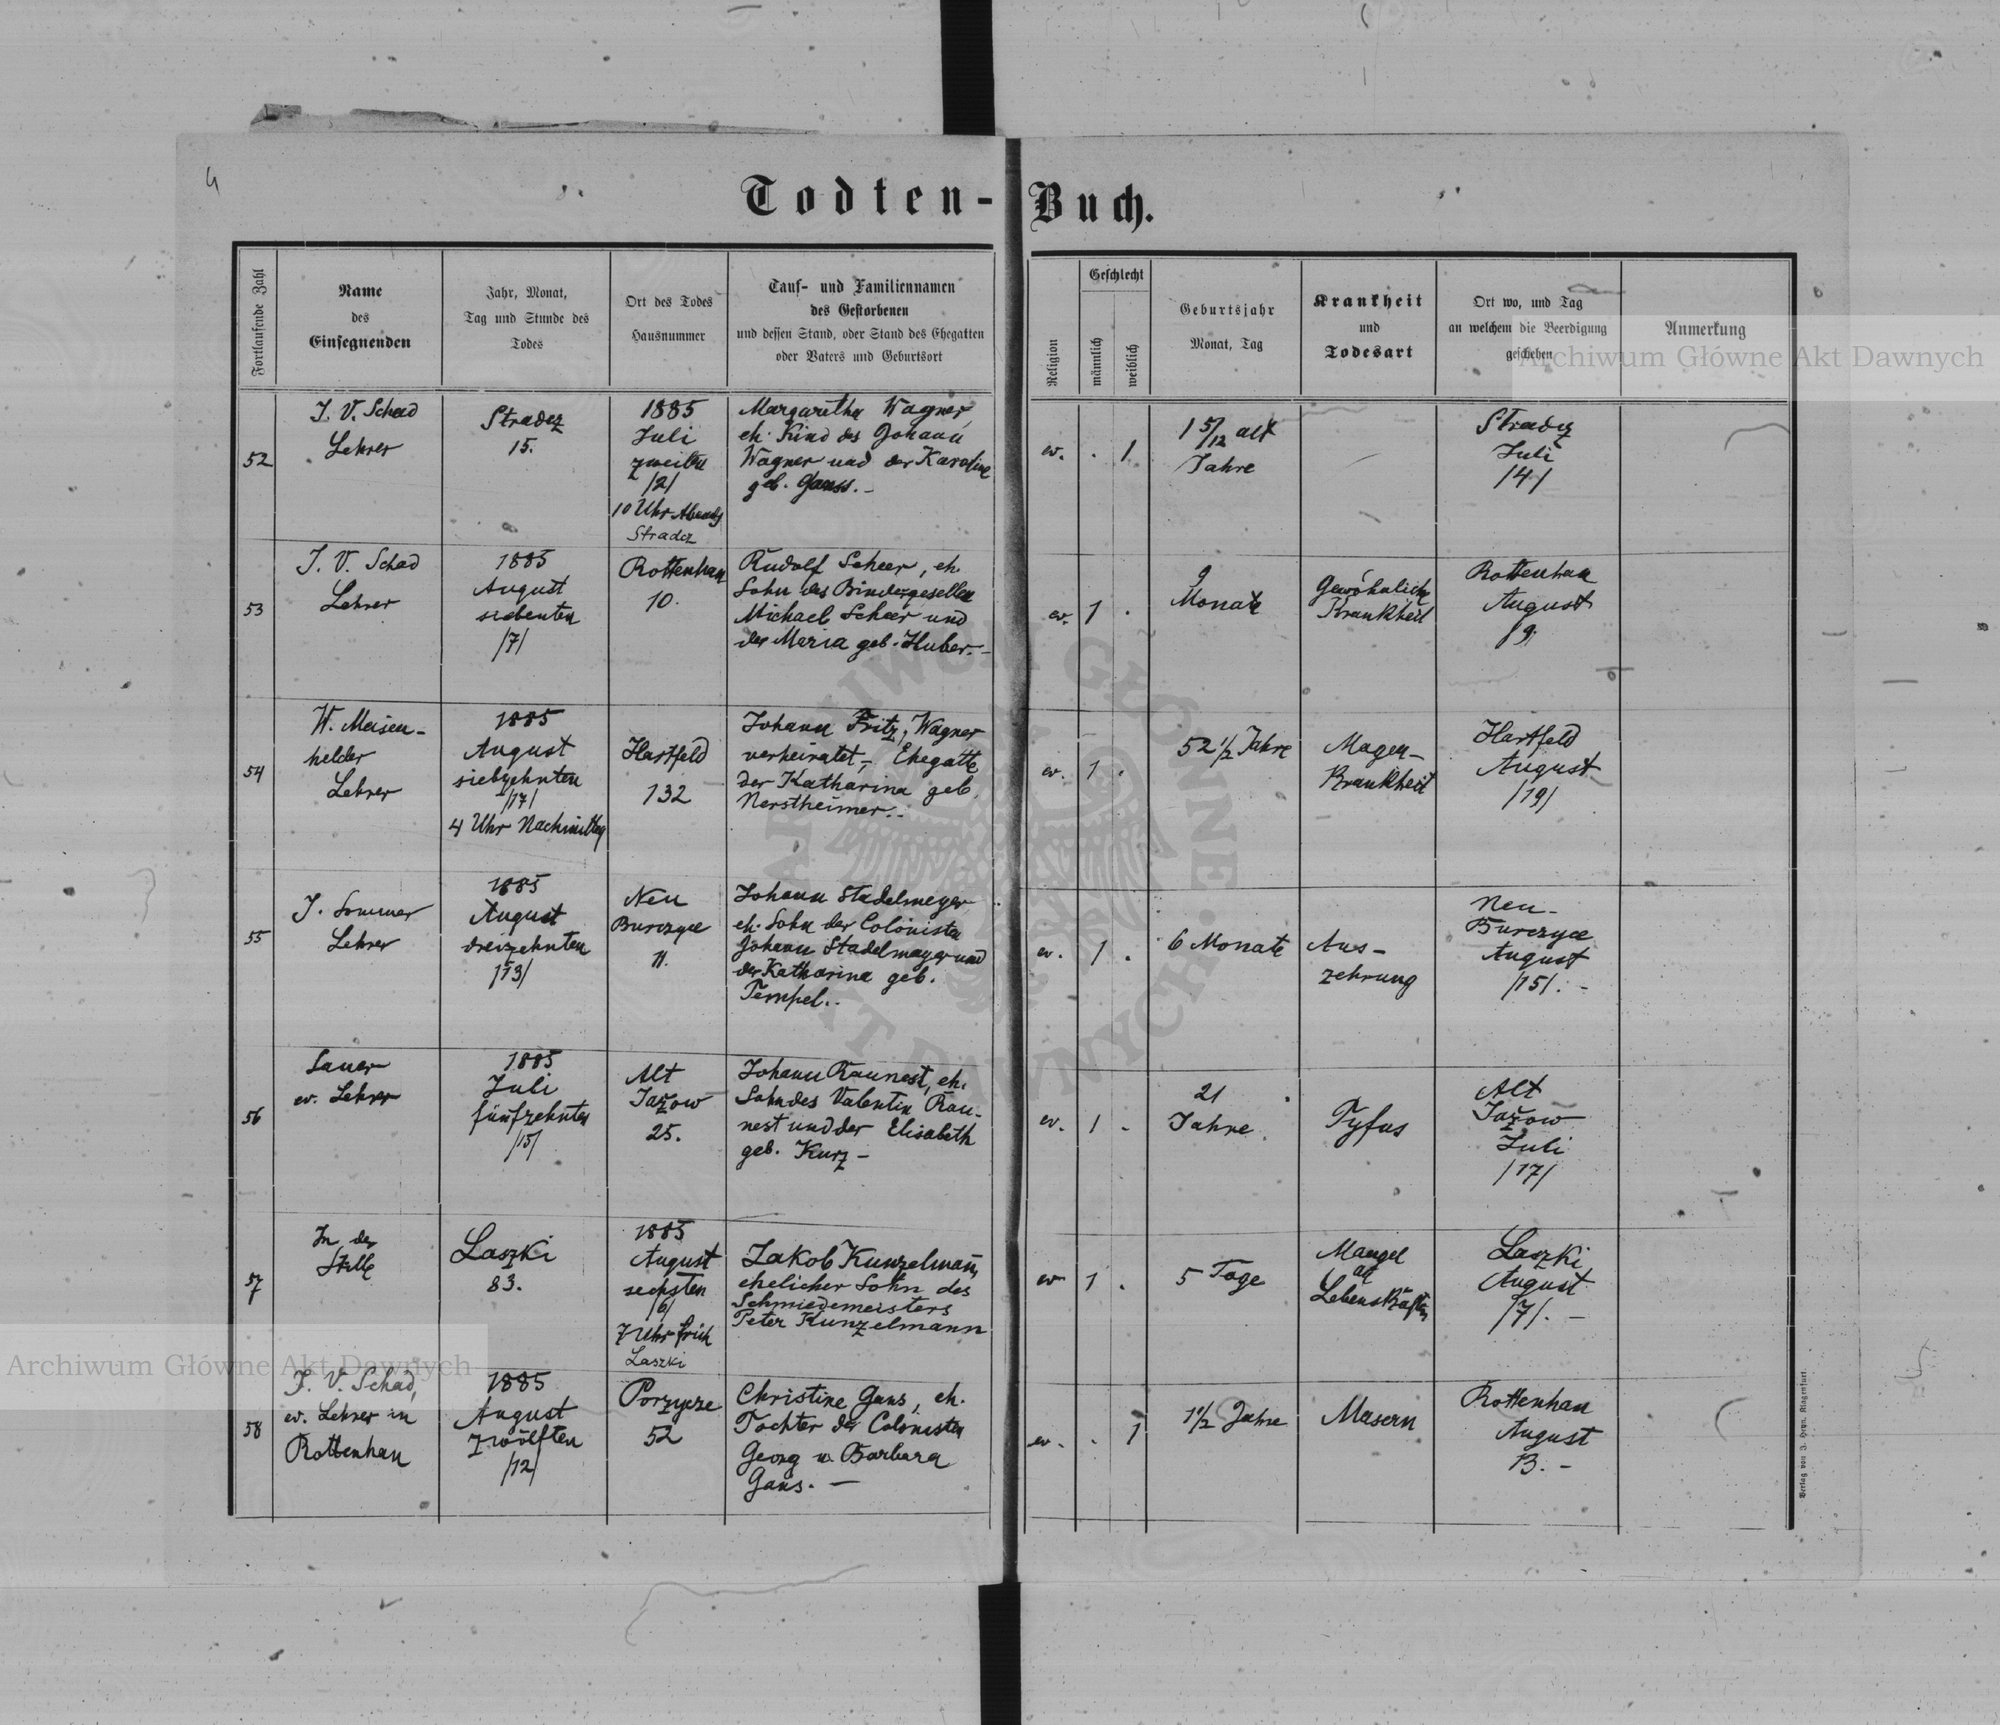 4
Todten-Buch.
Fortlaufende Zahl
Name
des
Einsegnenden
Jahr, Monat,
Tag und Stunde des
Todes
Ort des Todes
Hausnummer
Tauf- und Familiennamen
des Gestorbenen
und dessen Stand, oder Stand des Ehegatten
oder Vaters und Geburtsort
Religion
Geschlecht
männlich
weiblich
Geburtsjahr
Monat, Tag
Krankheit
und
Todesart
Ort wo, und Tag
an welchem die Beerdigung
geschehen
Anmerkung
52
J. V. Schad
Lehrer
Stradcz
15.
1885
Juli
zweiten
/2/
10 Uhr Abends
Stradcz
Margaretha Wagner,
eh. Kind des Johann
Wagner und der Karoline
geb. Gauss. –
ev. . 1
1 5/12 alt
Jahre
–
Stradcz
Juli
/4/
53
J. V. Schad
Lehrer
1885
August
siebenten
/7/
Rottenhan
10.
Rudolf Scheer, eh.
Sohn des Bindergesellen
Michael Scheer und
der Maria geb. Huber. –
ev. 1 .
9
Monate
Gewöhnliche
Krankheit
Rottenhan
August
/9.
54
W. Meisen-
helder
Lehrer
1885
August
siebzehnten
/17/
4 Uhr Nachmittag
Hartfeld
132
Johann Fritz, Wagner
verheiratet, Ehegatte
der Katharina geb.
Nerstheimer. .
ev. 1 .
52 1/2 Jahre
Magen-
Krankheit
Hartfeld
August
/19/
55
J. Sommer
Lehrer
1885
August
dreizehnten
/13/
Neu
Burczyce
11.
Johann Stadelmeyer
eh. Sohn der Colonisten
Johann Stadelmayer und
der Katharina geb.
Tempel. .
ev. 1 .
6 Monate
Aus-
zehrung
Neu-
Burczyce
August
/15/. –
56
Sauer
ev. Lehrer
1885
Juli
fünfzehnten
/15/
Alt
Jažow
25.
Johann Raunest, eh.
Sohn des Valentin Rau-
nest und der Elisabeth
geb. Kurz –
ev. 1 .
21
Jahre
Tyfus
Alt
Jažow
Juli
/17/
57
In der
Stille
Laszki
83.
1885
August
sechsten
/6/
7 Uhr früh
Laszki
Jakob Kunzelmann,
ehelicher Sohn des
Schmiedemeisters
Peter Kunzelmann
ev 1 .
5 Tage
Mangel
an
Lebenskräften
Laszki
August
/7/. –
58
J. V. Schad,
ev. Lehrer in
Rottenhan
1885
August
zwölften
/12/
Porzycze
52
Christine Gans, eh.
Tochter der Colonisten
Georg u. Barbara
Gans. –
ev. . 1
1 1/2 Jahre
Masern
Rottenhan
August
13. –
Verlag von J. Heyn, Klagenfurt.
Archiwum Główne Akt Dawnych
Archiwum Główne Akt Dawnych
ARCHIWUM GŁÓWNE • AKT DAWNYCH •